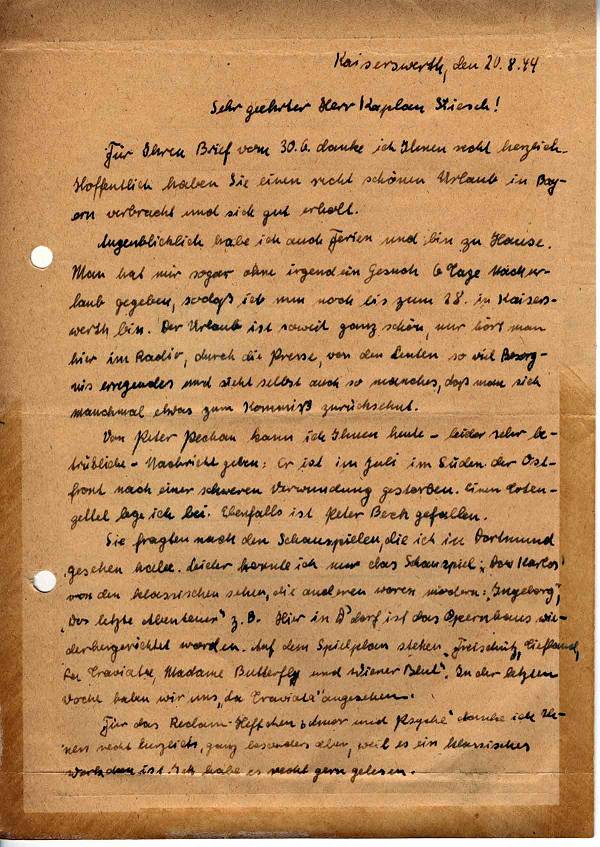 Kaiserswerth, den 20.8.44
Sehr geehrter Herr Kaplan Stiesch!
Für Ihren Brief vom 30.6. danke ich Ihnen recht herzlich.
Hoffentlich haben Sie einen recht schönen Urlaub in Bay-
ern verbracht und sich gut erholt.
Augenblicklich habe ich auch Ferien und bin zu Hause.
Man hat mir sogar ohne irgend ein Gesuch 6 Tage Nachur-
laub gegeben, sodaß ich nun noch bis zum 28. in Kaisers-
werth bin. Der Urlaub ist soweit ganz schön, nur hört man
hier im Radio, durch die Presse, von den Leuten so viel Besorg-
nis erregendes und sieht selbst auch so manches, daß man sich
manchmal etwas zum Kommiß zurücksehnt.
Von Peter Pechan kann ich Ihnen heute - leider sehr be-
trübliche - Nachricht geben: Er ist im Juli im Süden der Ost-
front nach einer schweren Verwundung gestorben. Einen Toten-
zettel lege ich bei. Ebenfalls ist Peter Beck gefallen.
Sie fragten nach den Schauspielen, die ich in Dortmund
gesehen habe. Leider konnte ich nur das Schauspiel: „Don Karlos"
von den klassischen sehen, die anderen waren modern: „Ingeborg",
„Das letzte Abenteuer" z.B. Hier in D'dorf ist das Opernhaus wie-
derhergerichtet worden. Auf dem Spielplan stehen „Freischütz, Tiefland,
La Traviata, Madame Butterfly und Wiener Blut". In der letzten
Woche haben wir uns „La Traviata" angesehen.
Für das Reclam-Heftchen „Amor und Psyche" danke ich Ih-
nen recht herzlich, ganz besonders aber, weil es ein klassisches
ist. Ich habe es recht gern gelesen.